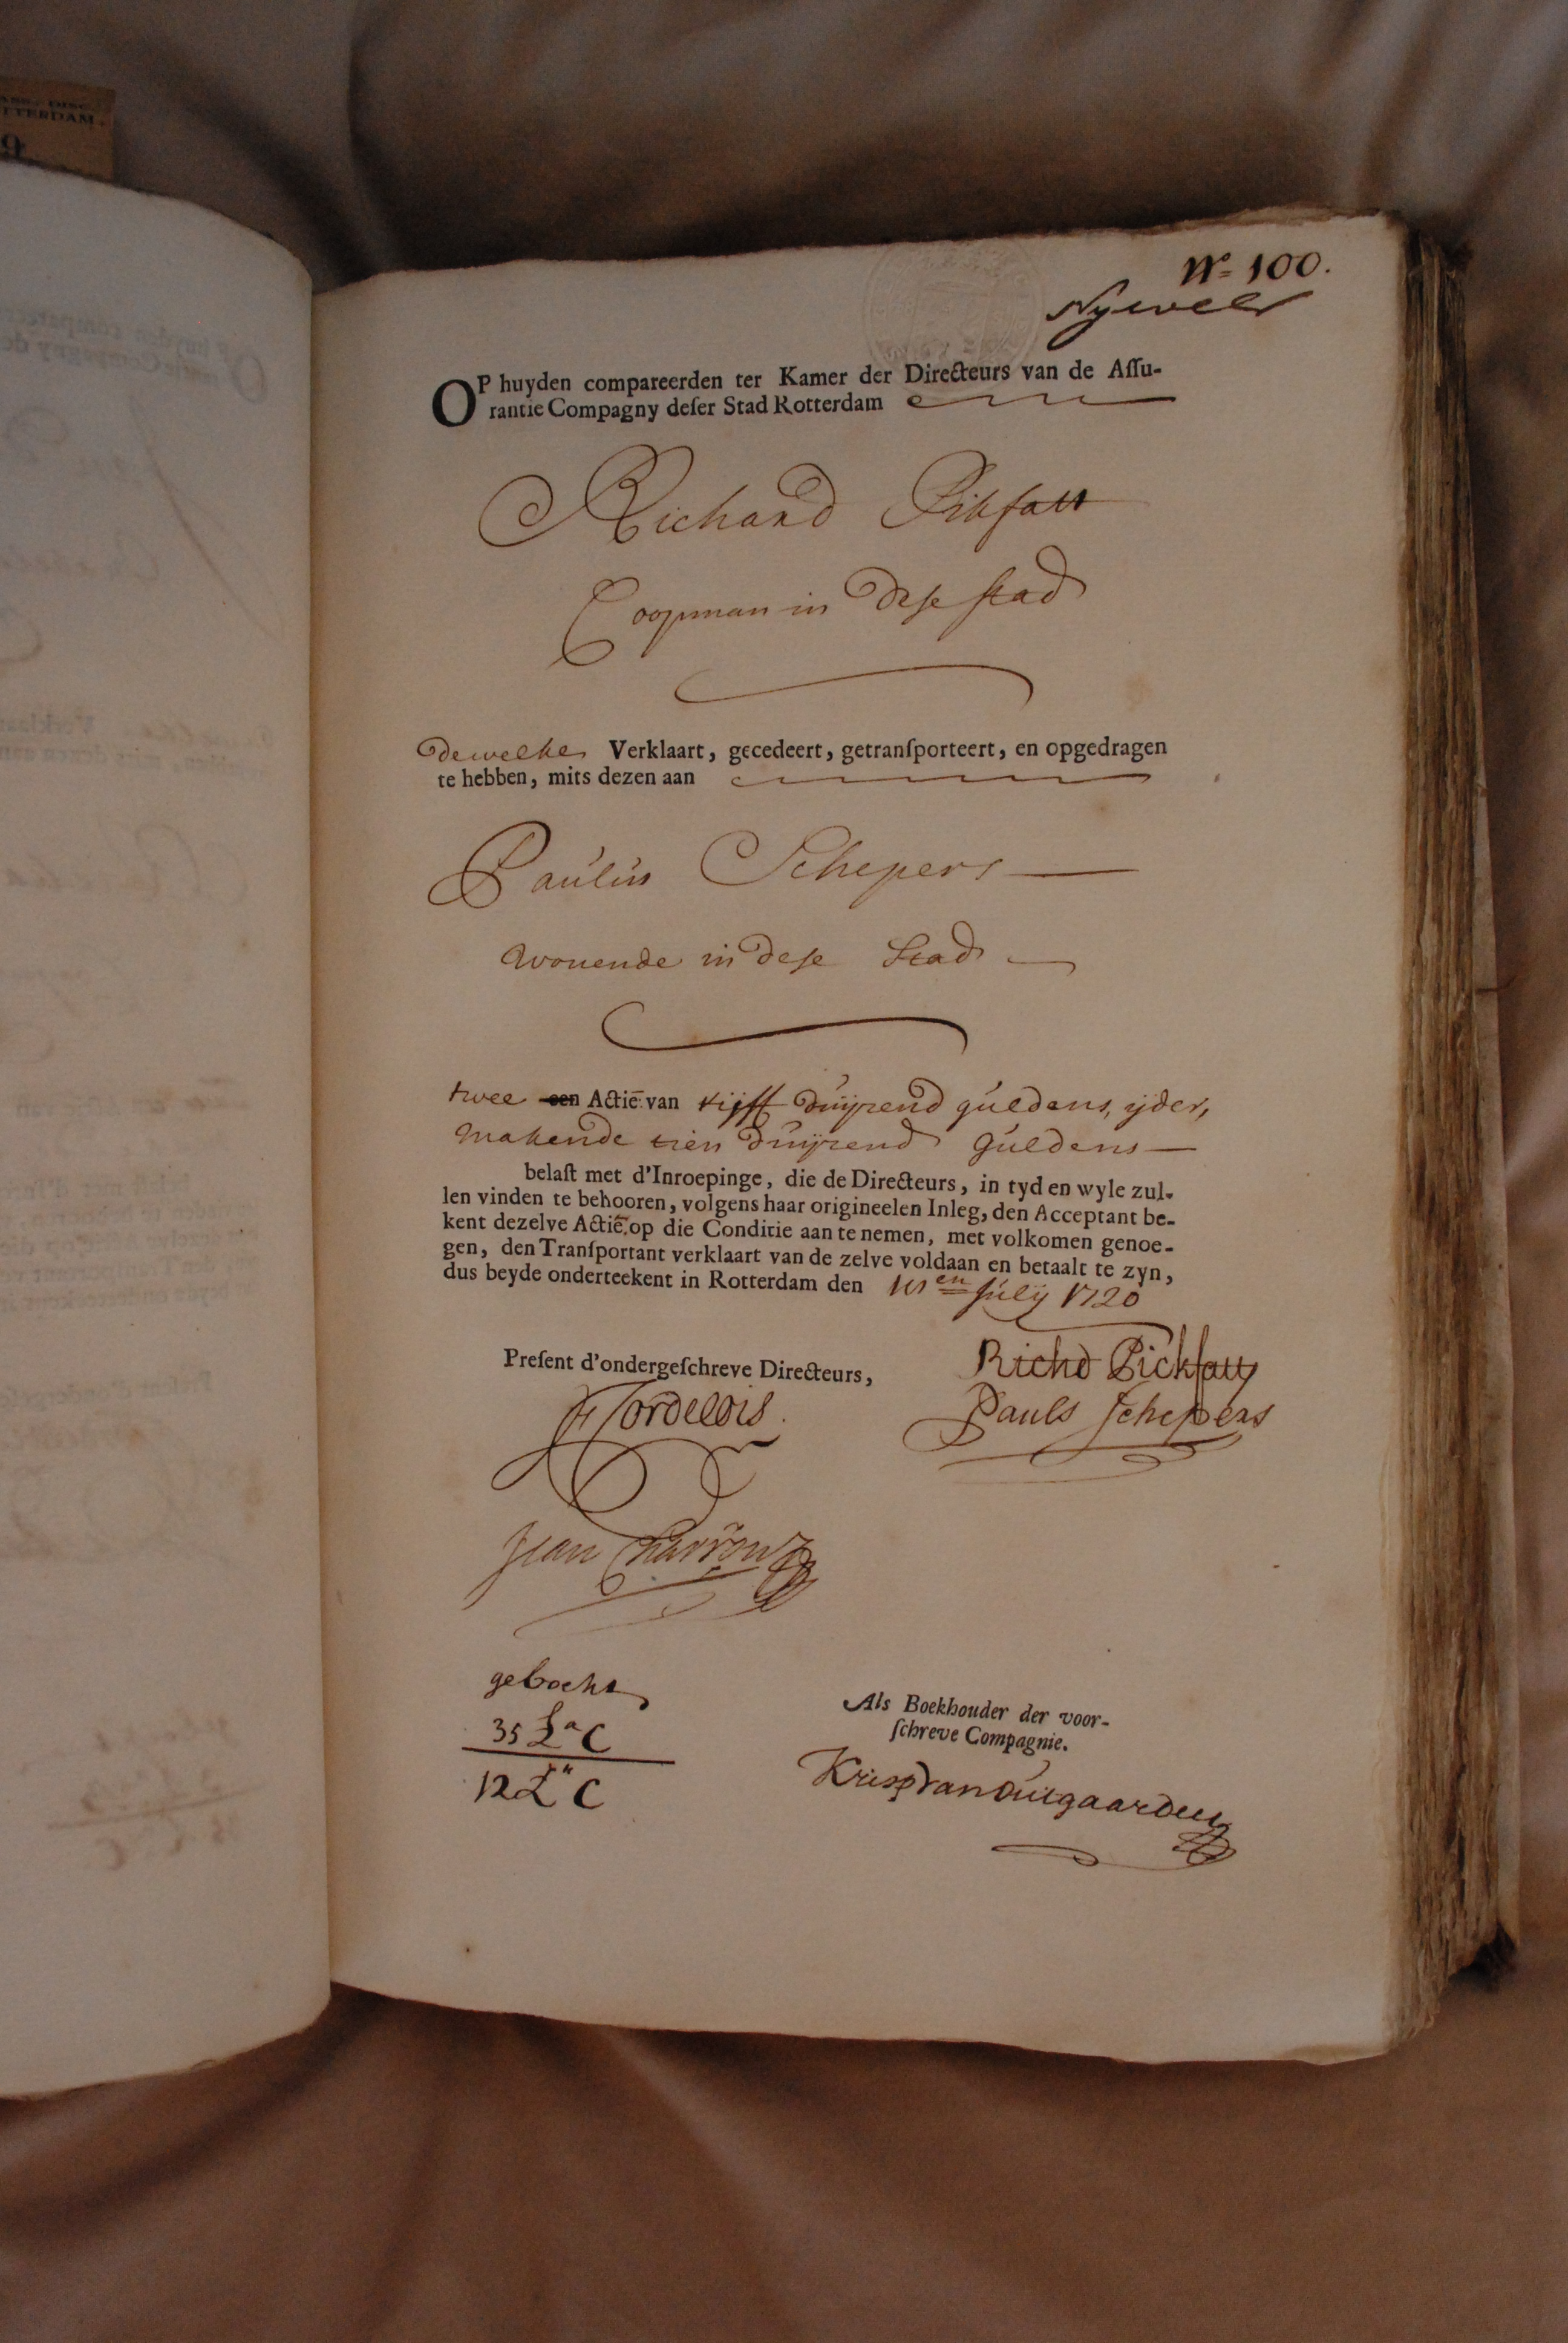 ASS. DISC.
TTERDAM.
9
No 100.
Nyvelt
OP huyden compareerden ter Kamer der Directeurs van de Aſſu-
rantie Compagny deſer Stad Rotterdam
Richard Pikfatt
Coopman in dese stad
dewelke Verklaart, gecedeert, getranſporteert, en opgedragen
te hebben, mits dezen aan
Paulus Schepers
wonende in dese Stad
twee een Actiē van vijff duijzend guldens, ijder,
makende tien duijzend guldens
belaſt met d'Inroepinge, die de Directeurs, in tyd en wyle zul-
len vinden te behooren, volgens haar origineelen Inleg, den Acceptant be-
kent dezelve Actiē op die Conditie aan te nemen, met volkomen genoe-
gen, den Tranſportant verklaart van de zelve voldaan en betaalt te zyn,
dus beyde onderteekent in Rotterdam den en Julij 1720
Preſent d'ondergeſchreve Directeurs,
Richd Pickfatt
Pauls Schepers
Jean Charron
gebocht
35 La C
12 La C
Als Boekhouder der voor-
ſchreve Compagnie.
Krisp van Outgaarden